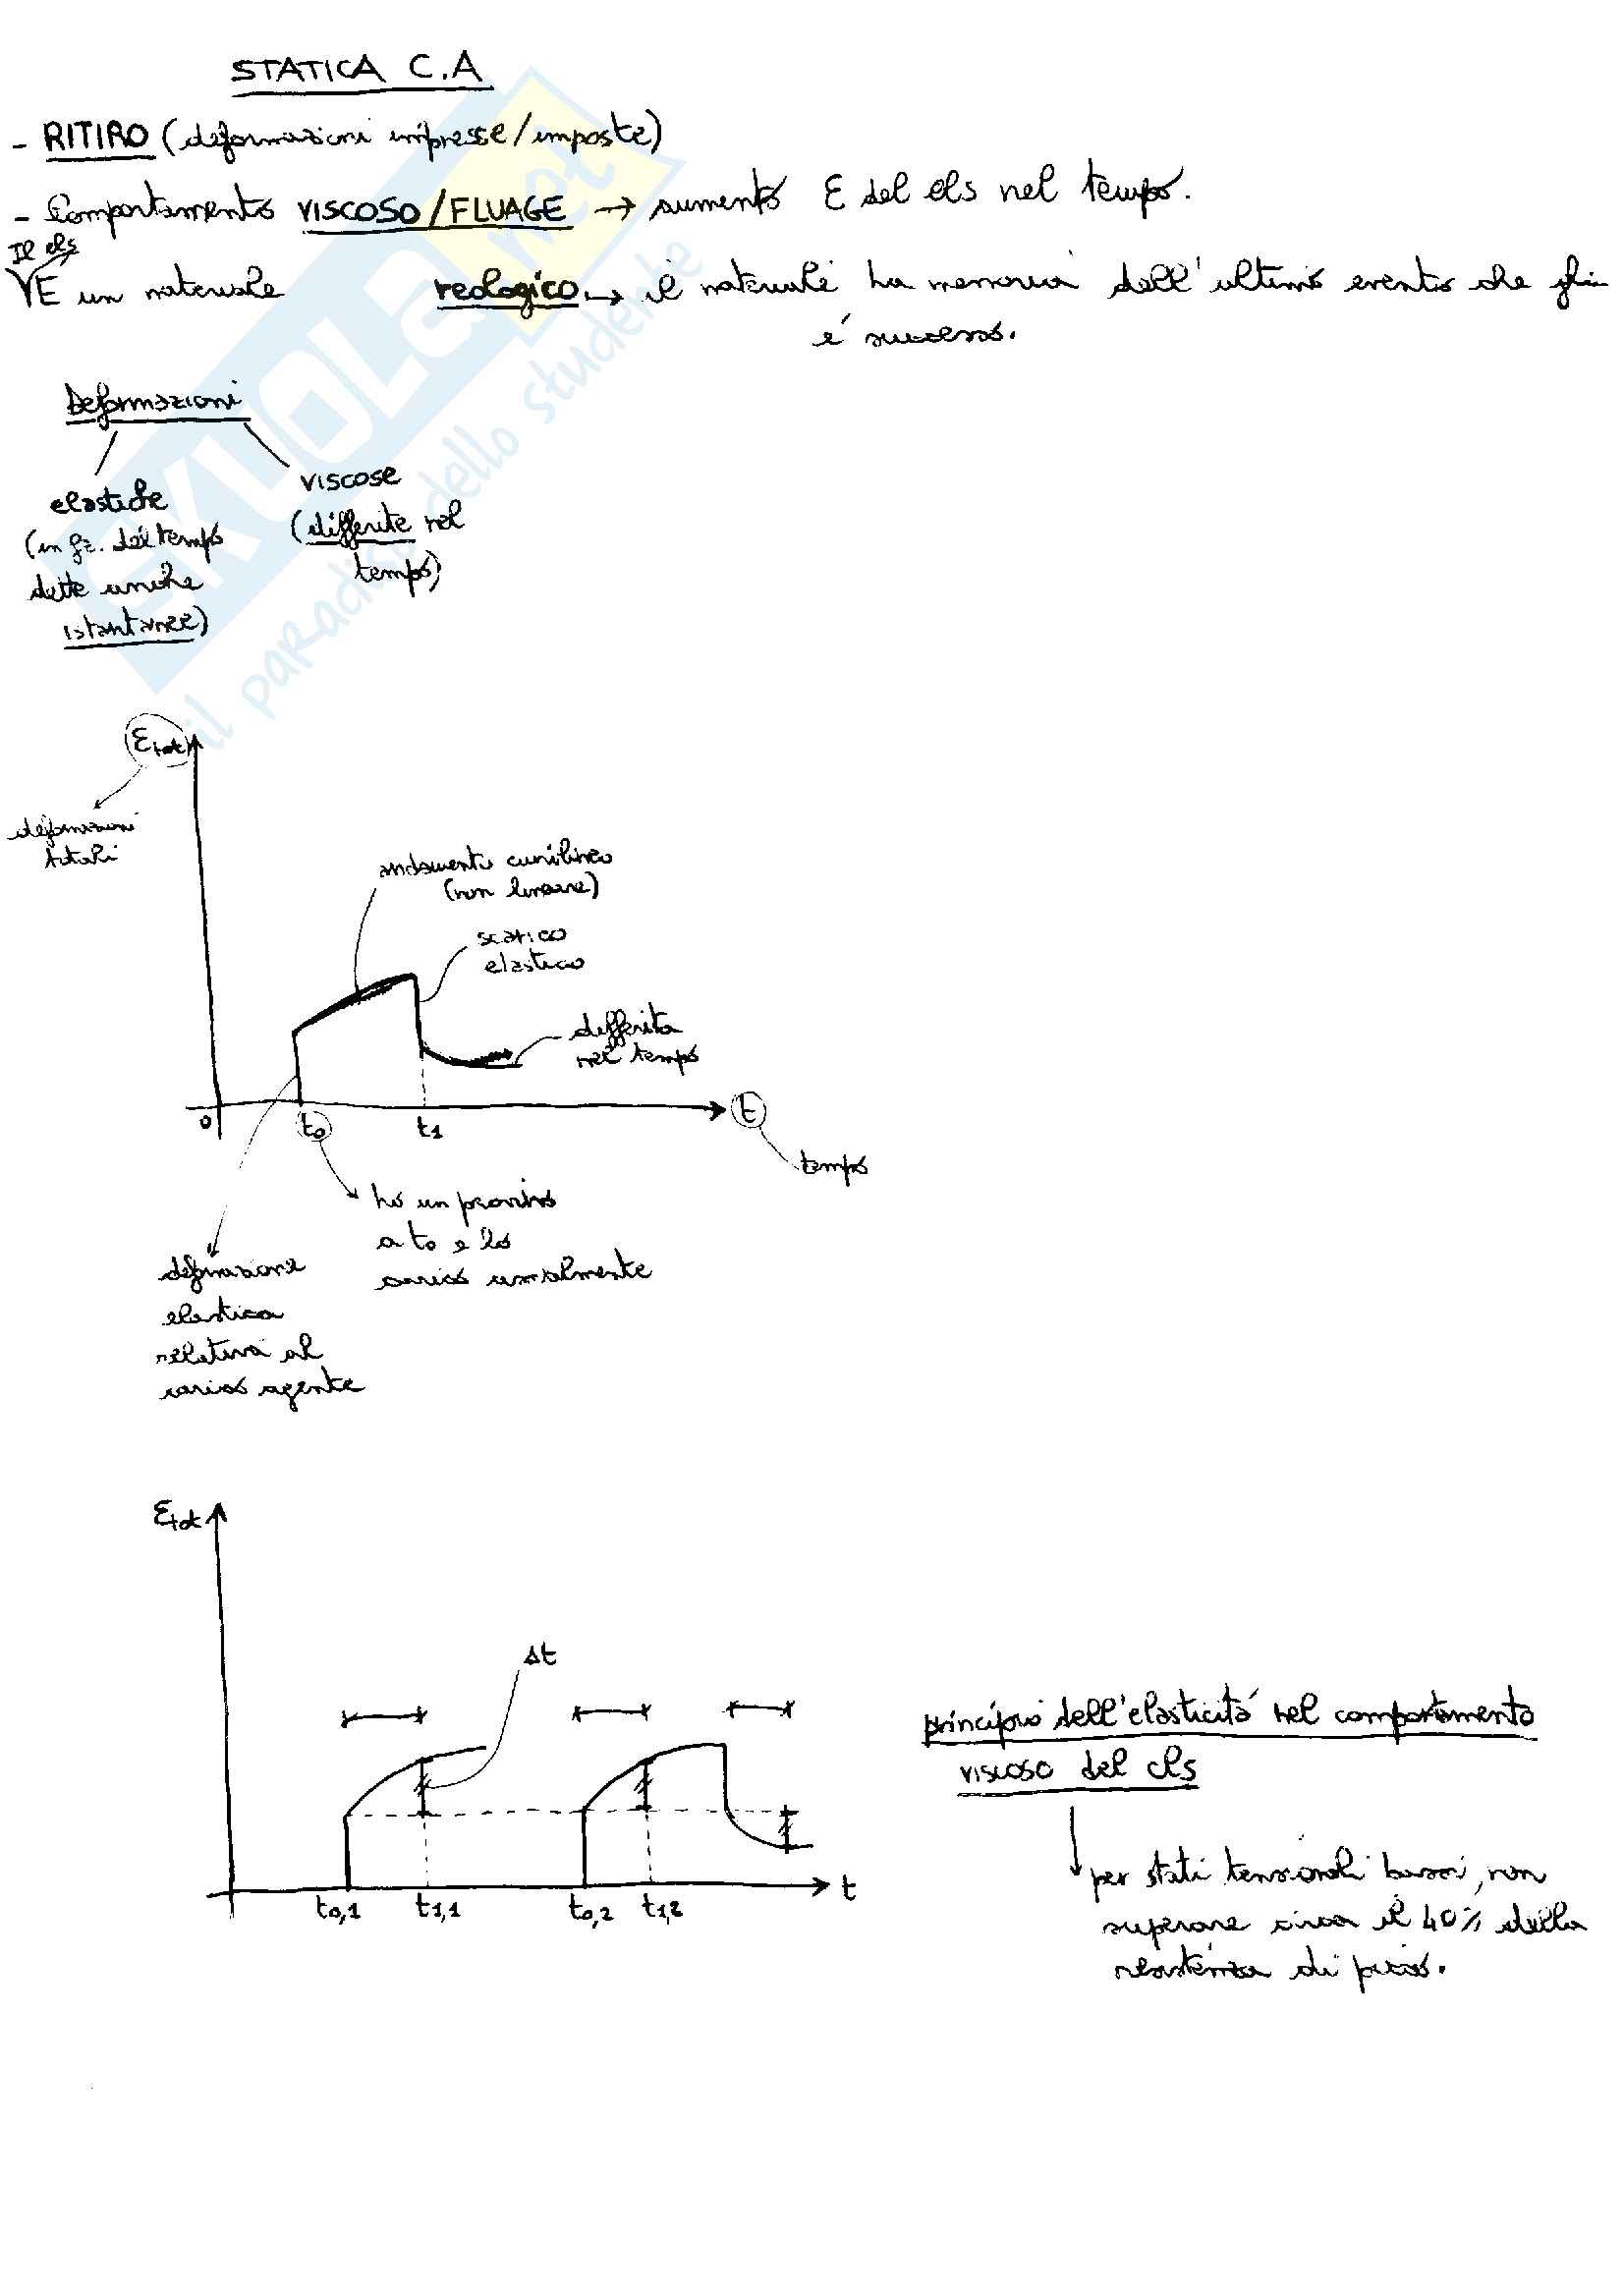 STATICA C.A
- RITIRO (deformazioni impresse/imposte)
- Comportamento VISCOSO/FLUAGE → aumento ε del cls nel tempo.
Il cls
È un materiale reologico → il materiale ha memoria dell'ultimo evento che gli
è successo.
Deformazioni
elastiche
(in fz. del tempo
dette anche
istantanee)
viscose
(differite nel
tempo)
SKUOLA.net
il paradiso dello studente
εtot
deformazioni
totali
andamento curvilineo
(non lineare)
scarico
elastico
differita
nel tempo
0
t0
t1
t
tempo
ho un provino
a t0 e lo
carico assialmente
deformazione
elastica
relativa al
carico agente
εtot
Δt
t0,1
t1,1
t0,2
t1,2
t
principio dell'elasticità nel comportamento
viscoso del cls
per stati tensionali bassi, non
superare circa il 40% della
resistenza di picco.